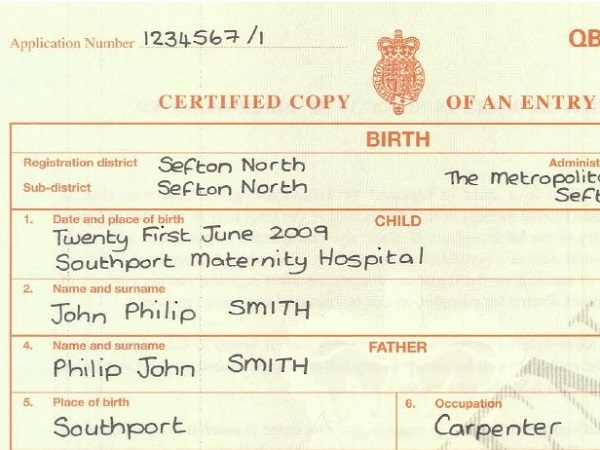 Application Number 1234567/1
QB
CERTIFIED COPY OF AN ENTRY
BIRTH
Registration district Sefton North
Administ
Sub-district Sefton North
The Metropolit
Seft
1. Date and place of birth CHILD
Twenty First June 2009
Southport Maternity Hospital
2. Name and surname
John Philip SMITH
4. Name and surname FATHER
Philip John SMITH
5. Place of birth 6. Occupation
Southport Carpenter